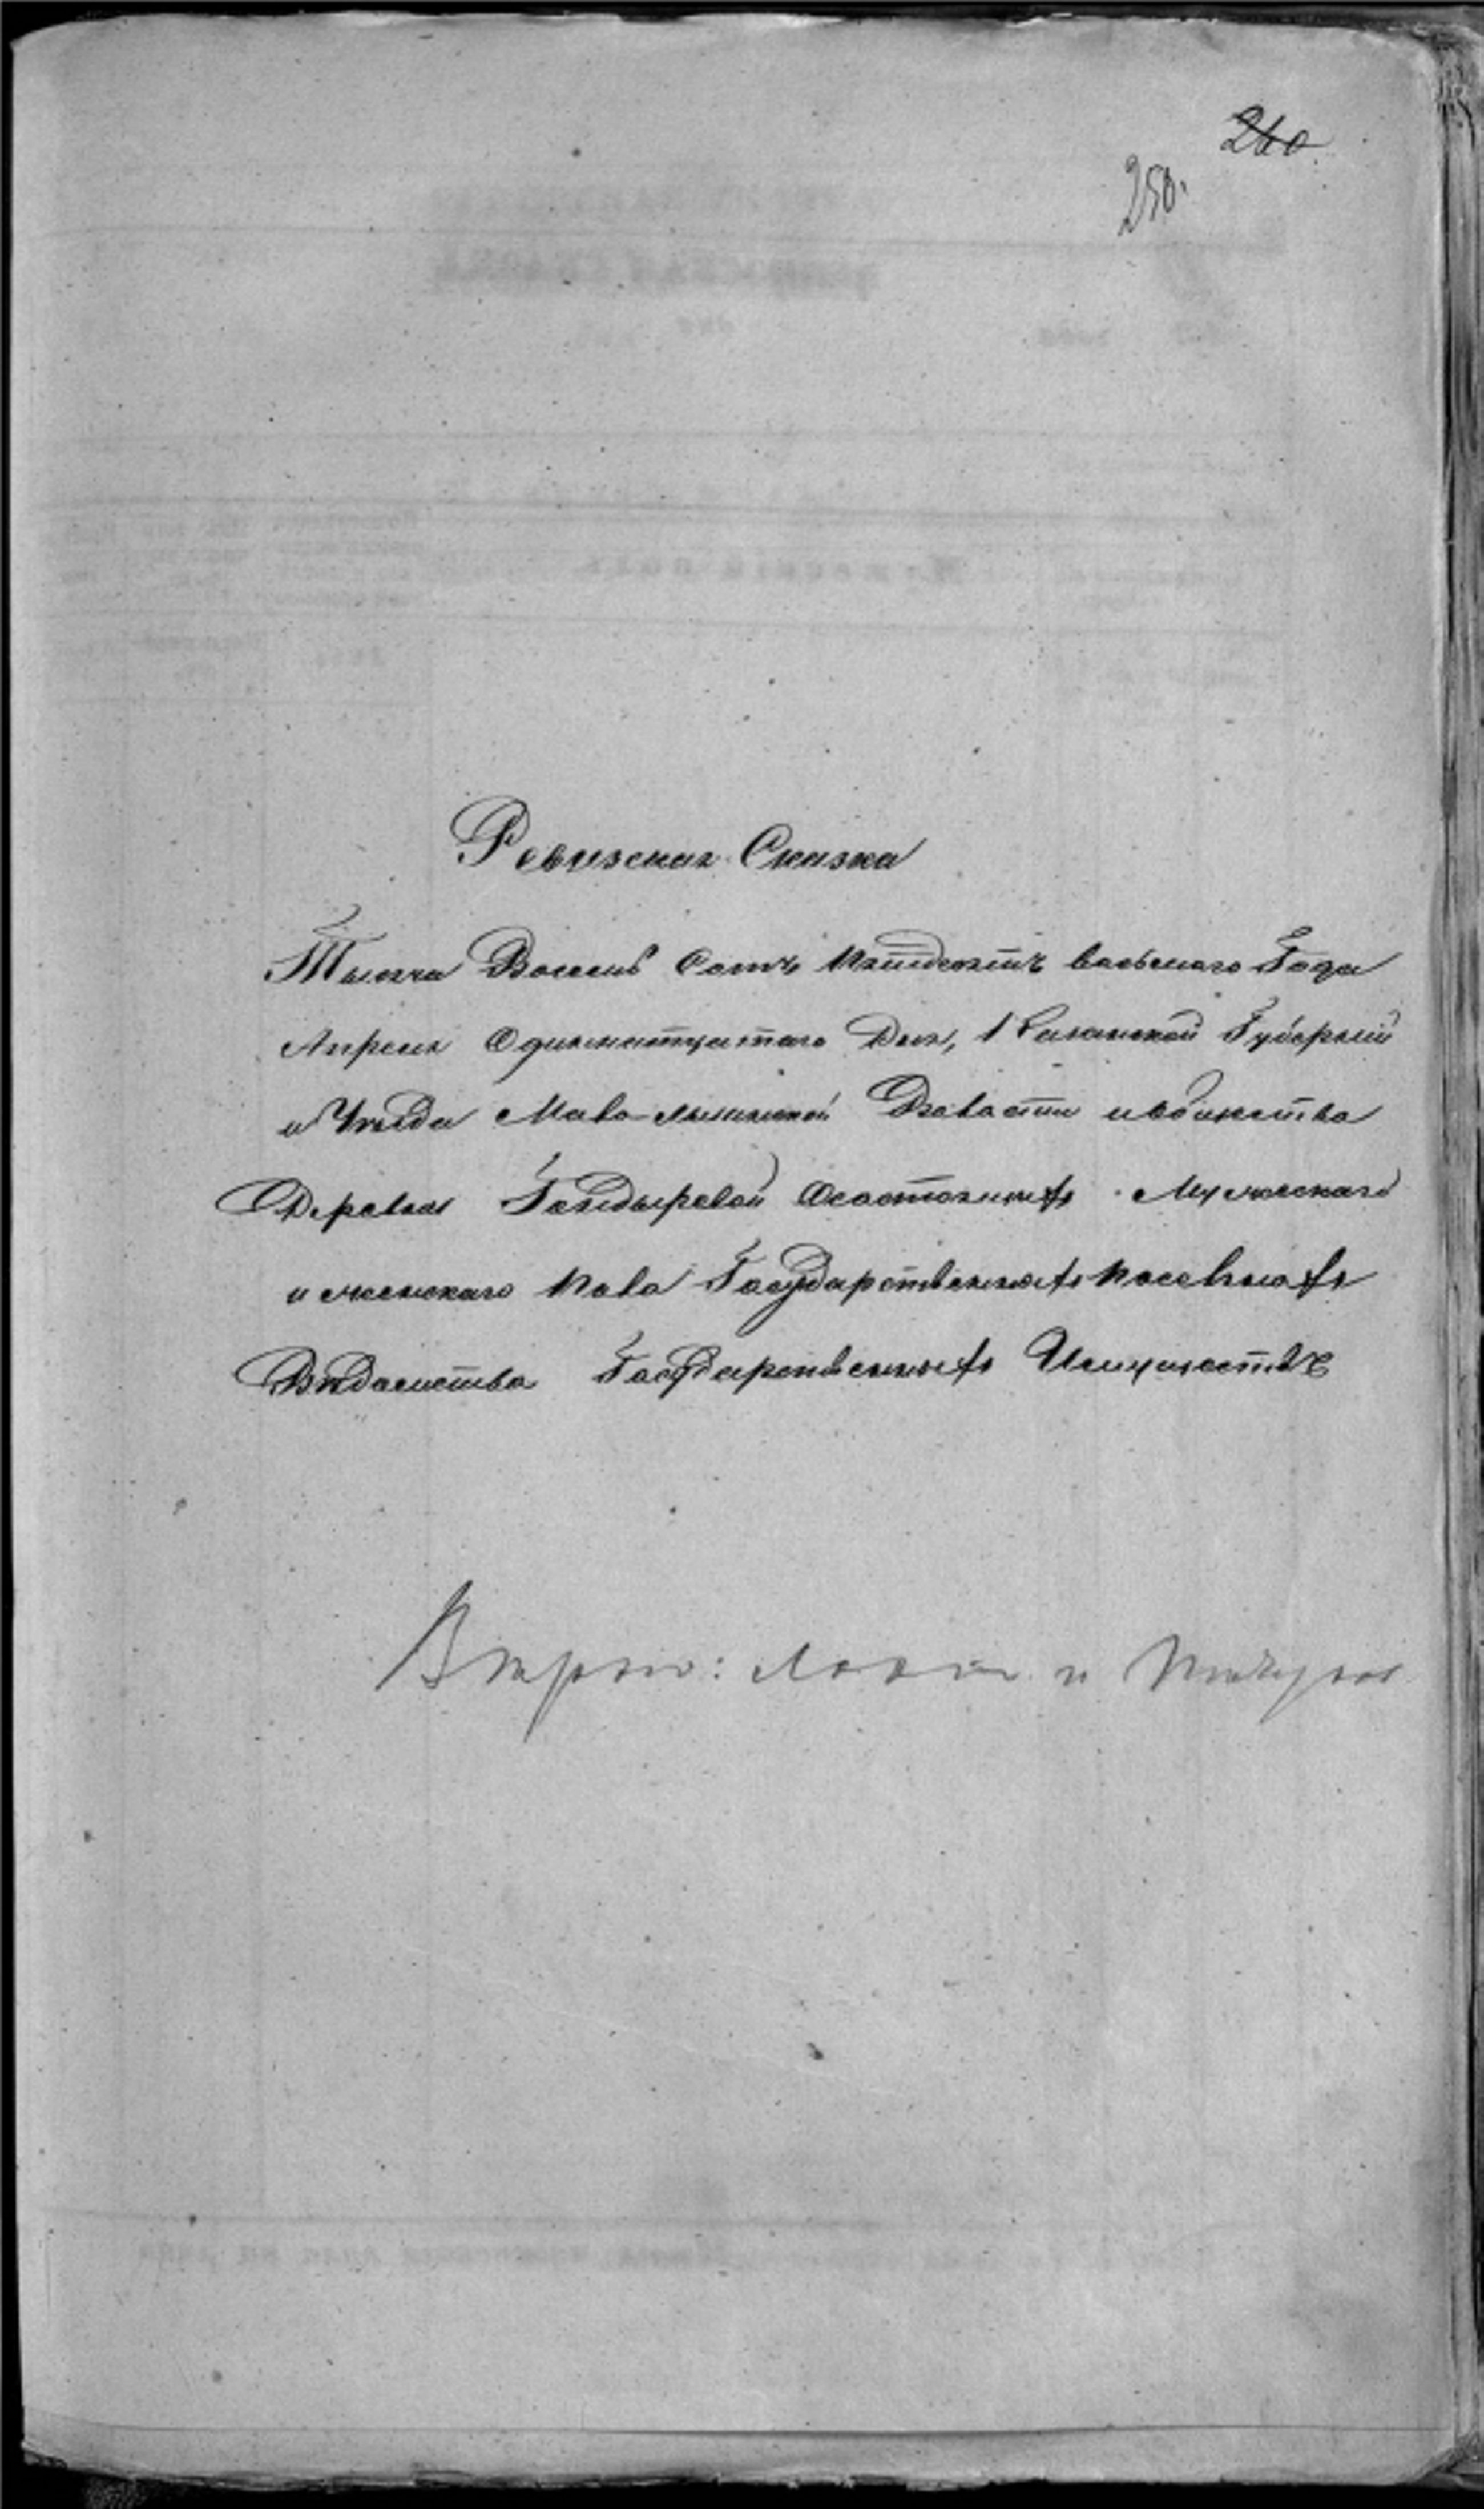 260
250.
Ревизская Сказка
Тысяча Восемь Сотъ Пятидесятъ восьмаго Года
Апреля Одиннатцатаго Дня, Казанской Губерніи
и Уезда Мавлюшинской Волости и общества
Деревни Гондыревой О состоящихъ Мужескаго
и женскаго Пола Государственныхъ поселянахъ
Ведомства Государственныхъ Имуществъ
и